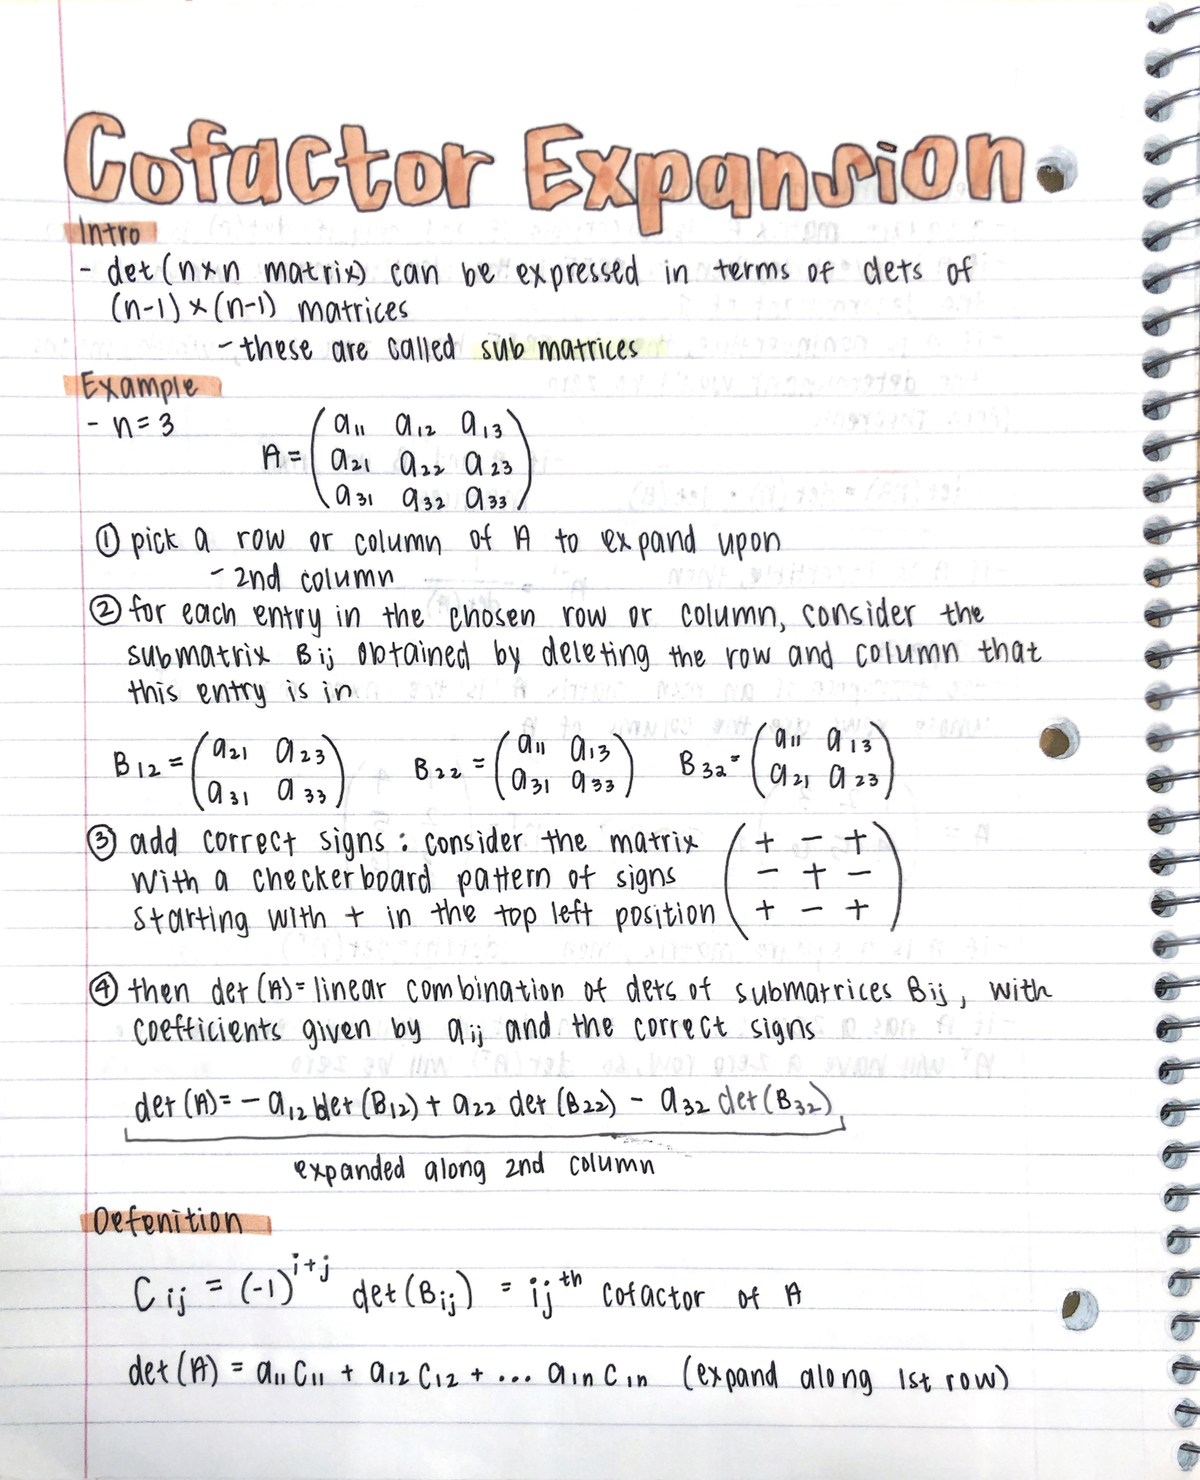 Cofactor Expansion
Intro
- det (n×n matrix) can be expressed in terms of dets of
(n-1) × (n-1) matrices
- these are called sub matrices
Example
- n = 3
A = ( a11 a12 a13
a21 a22 a23
a31 a32 a33 )
① pick a row or column of A to expand upon
- 2nd column
② for each entry in the chosen row or column, consider the
submatrix Bij obtained by deleting the row and column that
this entry is in
B12 = ( a21 a23 a31 a33 ) B22 = ( a11 a13 a31 a33 ) B32 = ( a11 a13 a21 a23 )
③ add correct signs : consider the matrix
with a checkerboard pattern of signs
starting with + in the top left position
( + - +
- + -
+ - + )
④ then det (A) = linear combination of dets of submatrices Bij, with
coefficients given by aij and the correct signs
det (A) = - a12 det (B12) + a22 det (B22) - a32 det (B32)
expanded along 2nd column
Defenition
Cij = (-1)^i+j det (Bij) = ij^th cofactor of A
det (A) = a11 C11 + a12 C12 + ... a1n C1n (expand along 1st row)